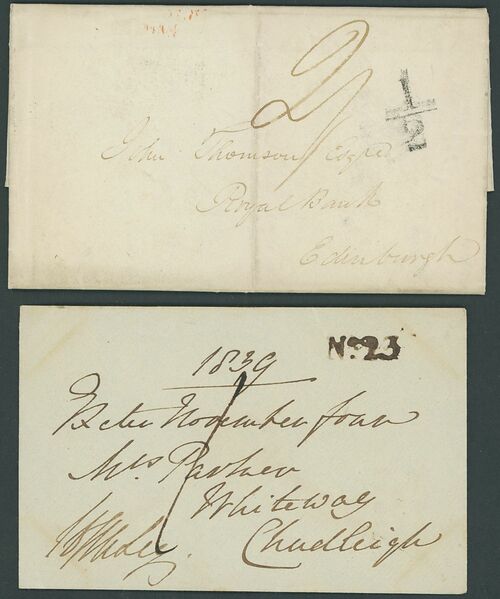 2/
1/2
John Thomson Esqre
Royal Bank
Edinburgh
No. 23
1839
Exeter November four
1
Mrs Parker
Whiteway
Chudleigh